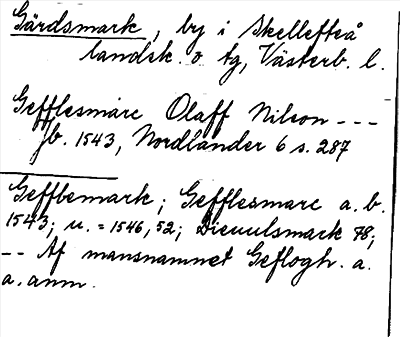 Gärdsmark, by i Skellefteå
landsk. o tg, Västerb. l.
Gefflesmarc Olaff Nilson ---
jb. 1543, Nordlander 6 s. 287
Geffbemark; Gefflesmarc a. b.
1543; u. = 1546, 52; 78;
-- Af mansnamnet Geflogh. a.
a. anm.